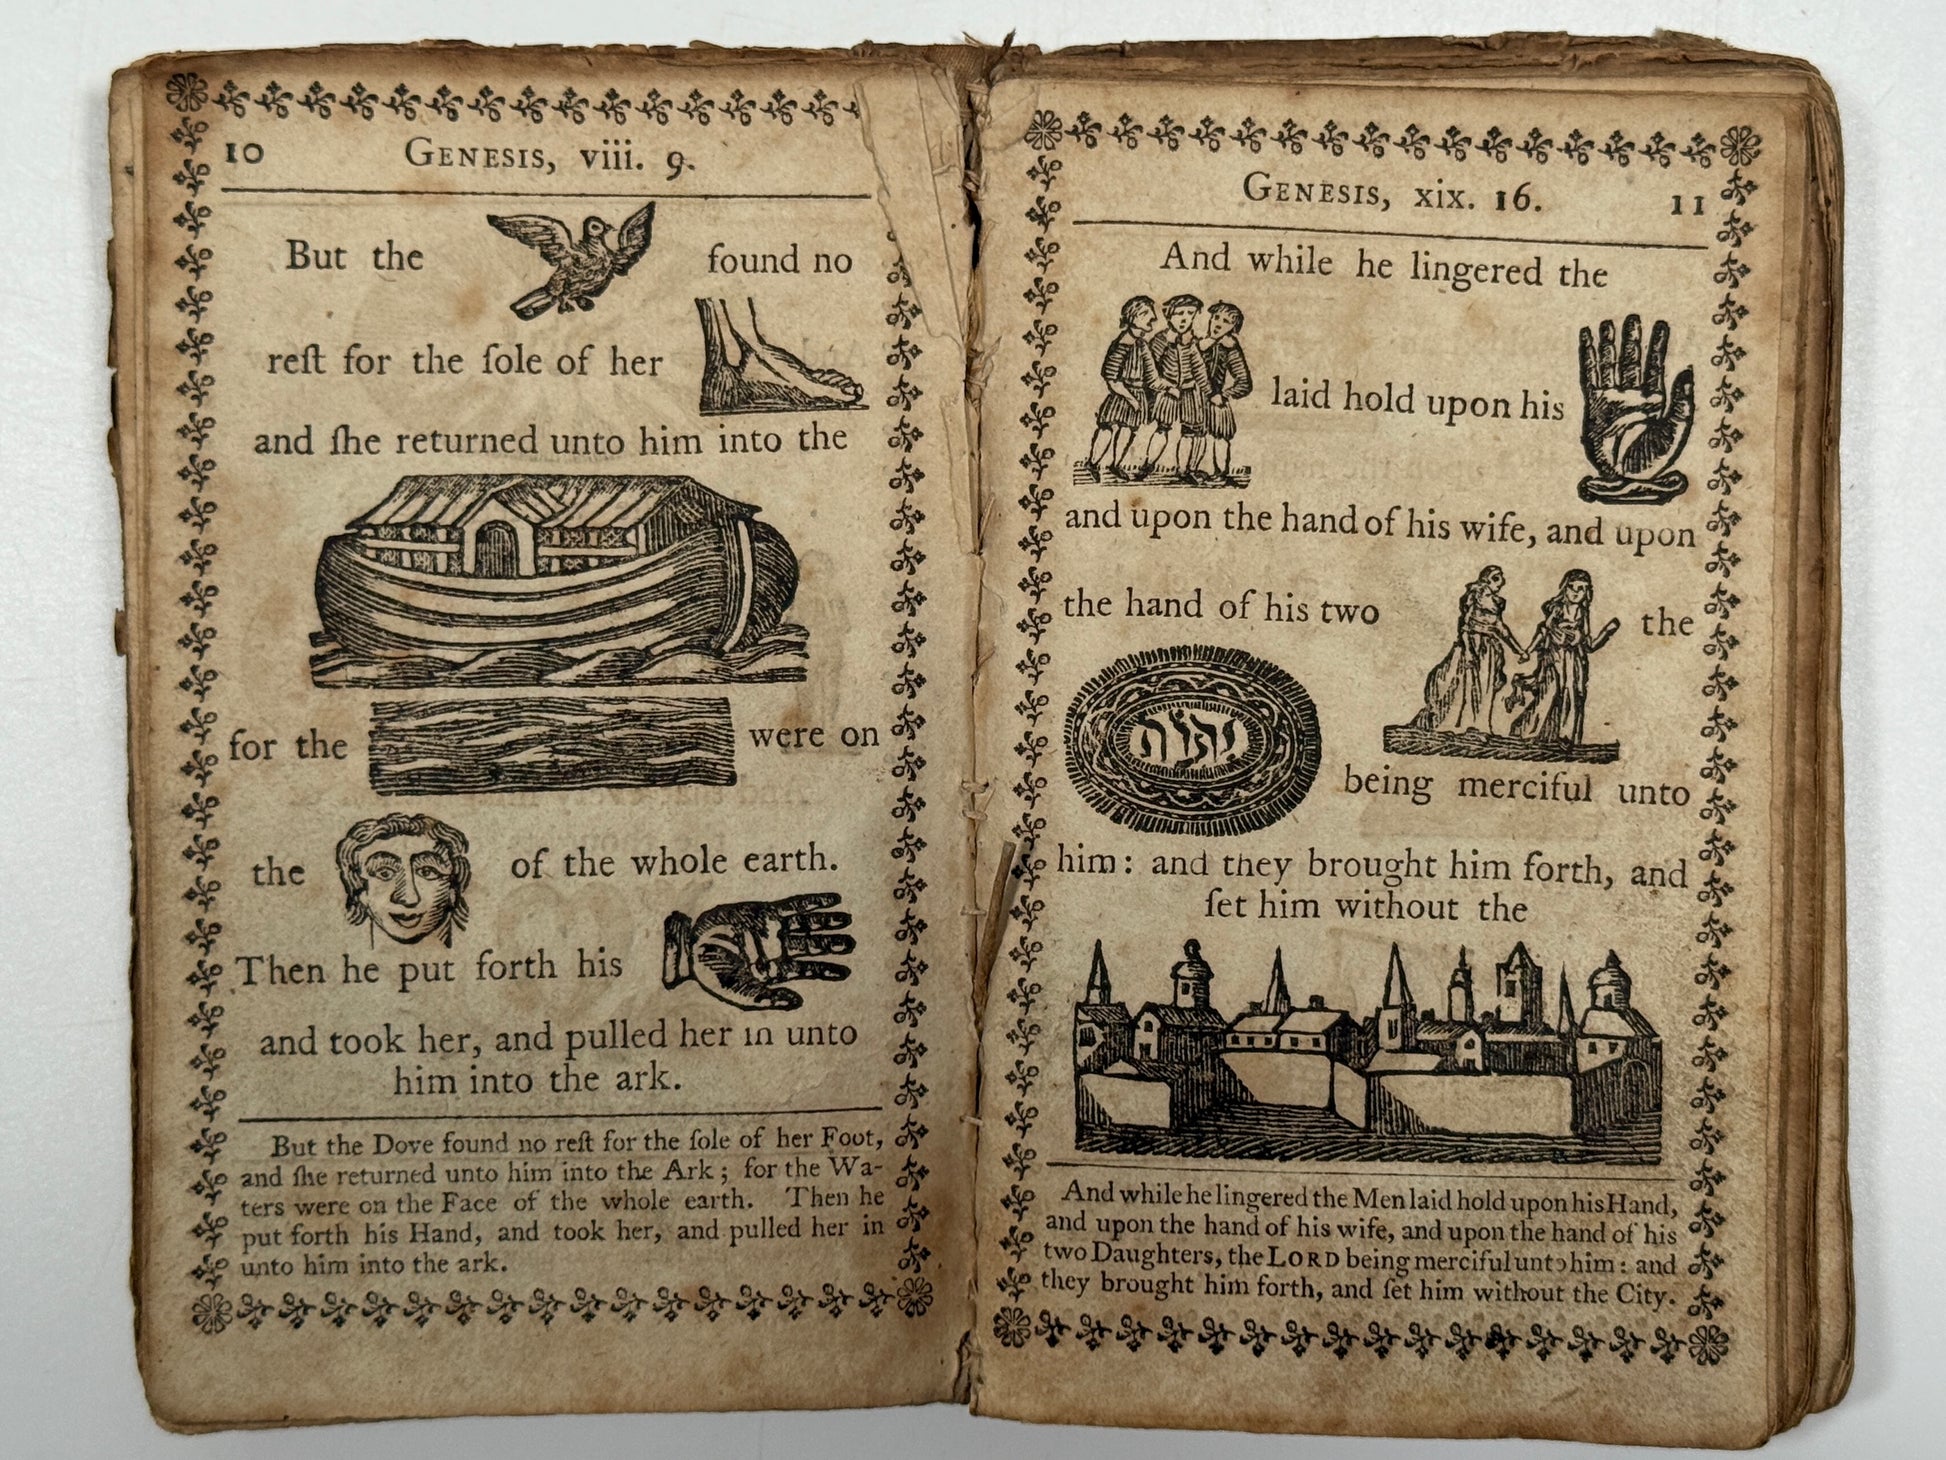 10
GENESIS, viii. 9.
But the found no
reſt for the ſole of her
and ſhe returned unto him into the
for the were on
the of the whole earth.
Then he put forth his
and took her, and pulled her in unto
him into the ark.
But the Dove found no reſt for the ſole of her Foot,
and ſhe returned unto him into the Ark; for the Wa-
ters were on the Face of the whole earth. Then he
put forth his Hand, and took her, and pulled her in
unto him into the ark.
GENESIS, xix. 16.
11
And while he lingered the
laid hold upon his
and upon the hand of his wife, and upon
the hand of his two the
יהוה
being merciful unto
him: and they brought him forth, and
ſet him without the
And while he lingered the Men laid hold upon his Hand,
and upon the hand of his wife, and upon the hand of his
two Daughters, the LORD being merciful unto him: and
they brought him forth, and ſet him without the City.